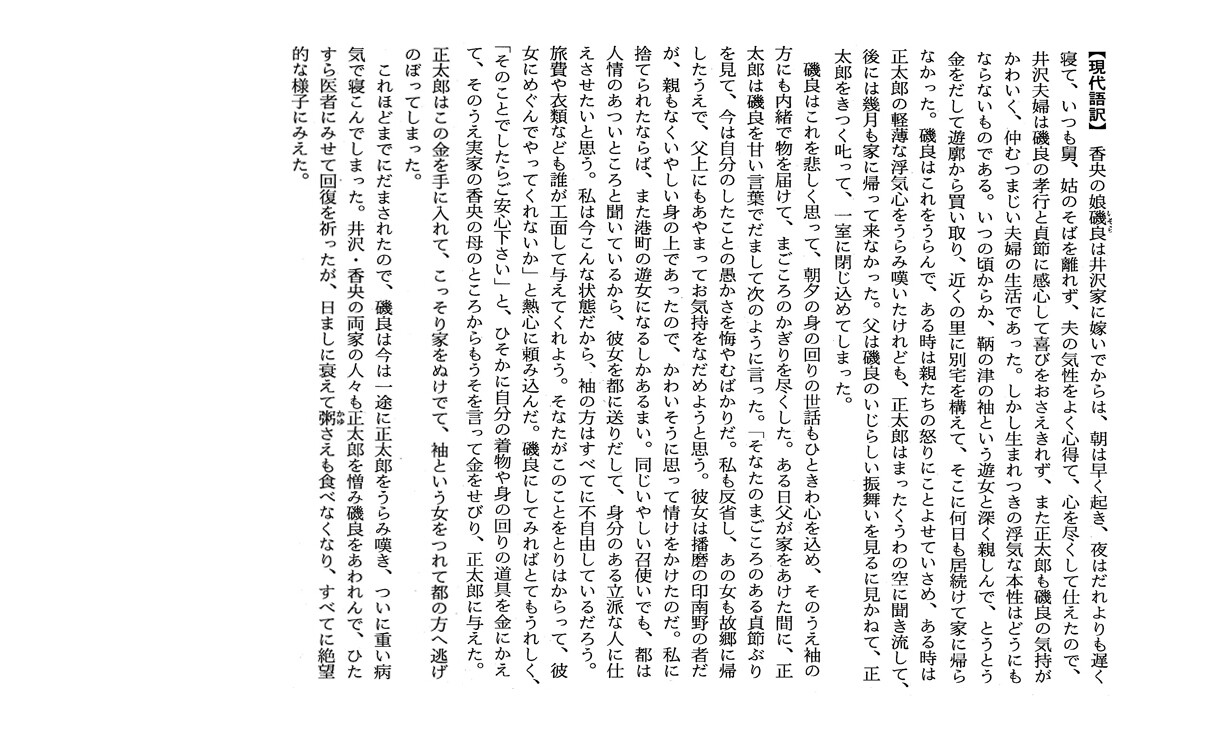 【現代語訳】　香央の娘磯良は井沢家に嫁いでからは、朝は早く起き、夜はだれよりも遅く
寝て、いつも舅、姑のそばを離れず、夫の気性をよく心得て、心を尽くして仕えたので、
井沢夫婦は磯良の孝行と貞節に感心して喜びをおさえきれず、また正太郎も磯良の気持が
かわいく、仲むつまじい夫婦の生活であった。しかし生まれつきの浮気な本性はどうにも
ならないものである。いつの頃からか、鞆の津の袖という遊女と深く親しんで、とうとう
金をだして遊廓から買い取り、近くの里に別宅を構えて、そこに何日も居続けて家に帰ら
なかった。磯良はこれをうらんで、ある時は親たちの怒りにことよせていさめ、ある時は
正太郎の軽薄な浮気心をうらみ嘆いたけれども、正太郎はまったくうわの空に聞き流して、
後には幾月も家に帰って来なかった。父は磯良のいじらしい振舞いを見るに見かねて、正
太郎をきつく叱って、一室に閉じ込めてしまった。
　磯良はこれを悲しく思って、朝夕の身の回りの世話もひときわ心を込め、そのうえ袖の
方にも内緒で物を届けて、まごころのかぎりを尽くした。ある日父が家をあけた間に、正
太郎は磯良を甘い言葉でだまして次のように言った。「そなたのまごころのある貞節ぶり
を見て、今は自分のしたことの愚かさを悔やむばかりだ。私も反省し、あの女も故郷に帰
したうえで、父上にもあやまってお気持をなだめようと思う。彼女は播磨の印南野の者だ
が、親もなくいやしい身の上であったので、かわいそうに思って情けをかけたのだ。私に
捨てられたならば、また港町の遊女になるしかあるまい。同じいやしい召使いでも、都は
人情のあついところと聞いているから、彼女を都に送りだして、身分のある立派な人に仕
えさせたいと思う。私は今こんな状態だから、袖の方はすべてに不自由しているだろう。
旅費や衣類なども誰が工面して与えてくれよう。そなたがこのことをとりはからって、彼
女にめぐんでやってくれないか」と熱心に頼み込んだ。磯良にしてみればとてもうれしく、
「そのことでしたらご安心下さい」と、ひそかに自分の着物や身の回りの道具を金にかえ
て、そのうえ実家の香央の母のところからもうそを言って金をせびり、正太郎に与えた。
正太郎はこの金を手に入れて、こっそり家をぬけでて、袖という女をつれて都の方へ逃げ
のぼってしまった。
　これほどまでにだまされたので、磯良は今は一途に正太郎をうらみ嘆き、ついに重い病
気で寝こんでしまった。井沢・香央の両家の人々も正太郎を憎み磯良をあわれんで、ひた
すら医者にみせて回復を祈ったが、日ましに衰えて粥さえも食べなくなり、すべてに絶望
的な様子にみえた。